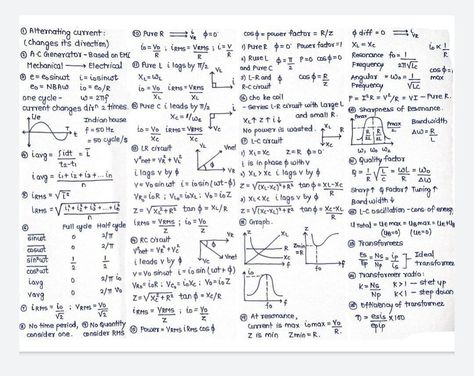 ① Alternating current:
(Changes its direction)
② A-C Generator - Based on EMI
Mechanical → Electrical
③ e = e₀ sin ωt i = i₀ sin ωt
e₀ = NBAω i₀ = e₀/R
one cycle - ω = 2πf
current changes dirⁿ 2 times.
Indian house
f = 50 Hz
= 50 cycle/s
④ i avg = ∫idt / ∫dt = ī
i avg = i₁ + i₂ + i₃ ... in / n
⑤ iRMS = √ī²
iRMS = √i₁² + i₂² + i₃² + ... in² / n
⑥ Full cycle Half cycle
sin ωt 0 2/π
cos ωt 0 2/π
sin²ωt 1/2 1/2
cos²ωt 1/2 1/2
i avg 0 2/π i₀
v avg 0 2/π V₀
⑦ iRMS = i₀/√2 VRMS = V₀/√2
⑧ No time period, consider one. ⑨ No quantity consider RMS
⑩ Pure R → iR VR ϕ = 0°
i₀ = V₀/R ; iRMS = VRMS/R ; i = V/R
⑪ Pure L i lags by π/2
XL = ωL
i₀ = V₀/XL ; iRMS = VRMS/XL
⑫ Pure C i leads by π/2
XC = 1/ωC
i₀ = V₀/XC iRMS = VRMS/XC
⑬ LR circuit
V²net = VR² + VL²
i lags V by ϕ
V = V₀ sin ωt i = i₀ sin (ωt - ϕ)
VR₀ = i₀R ; VL₀ = i₀XL ; V₀ = i₀Z
Z = √XL² + R² tan ϕ = XL/R
iRMS = VRMS/Z ; i₀ = V₀/Z
⑭ RC circuit
V²net = VR² + VC²
i leads V by ϕ
V = V₀ sin ωt i = i₀ sin (ωt + ϕ)
VR₀ = i₀R ; VC₀ = i₀XC ; V₀ = i₀Z
Z = √XC² + R² tan ϕ = XC/R
iRMS = VRMS/Z ; i₀ = V₀/Z
⑮ Power = VRMS iRMS cos ϕ
cos ϕ = power factor = R/Z
① Pure R ϕ = 0 Power factor = 1
② Pure L and Pure C ϕ = π/2 P = 0 cos ϕ = 0
③ L-R and R-C circuit cos ϕ = R/Z
⑯ choke coil
- Series L-R circuit with large L and small R.
No power is wasted.
⑰ L-C circuit
① XL = XC Z = R ϕ = 0°
i is in phase with V
② XL > XC i lags V by ϕ
Z = √(XL - XC)² + R² tan ϕ = XL - XC / R
③ XC > XL i leads V by ϕ
Z = √(XC - XL)² + R² tan ϕ = XC - XL / R
⑱ Graph.
f₀
⑲ At resonance,
Current is max i₀max = V₀/R
Z is min Zmin = R.
ϕ diff = 0 →
XL = XC
Resonance Frequency f₀ = 1 / 2π√LC
Angular Frequency ω₀ = 1 / √LC
P = I²R = V²/R = VI - Pure R.
sharpness of Resonance.
Pmax
Bandwidth
Δω = R/L
Quality factor
Q = 1/R √L/C = ωL/R = ω₀/Δω
Sharp ↑ Q factor ↑ Tuning ↑
Bandwidth ↓
L-C oscillation - cons of energy
Utotal = UE max = UB max = UE + UB
(UB = 0) (UE = 0)
Transformers
es/ep = Ns/Np = ip/is Ideal transformer
Transformer ratio:
K = Ns/Np K > 1 - step up
K < 1 - step down
Efficiency of transformer
η = es is / ep ip × 100